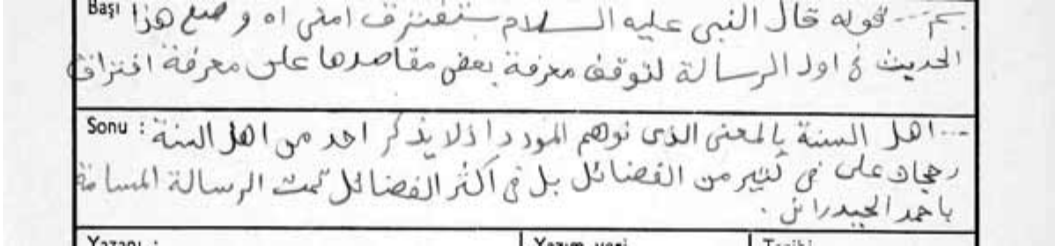 Başı
بسم... قوله قال النبى عليه الســلام ستفترق امتى اه وضع هذا
الحديث فى اول الرسالة لتوقف معرفة بعض مقاصدها على معرفة افتراق
Sonu : ...اهل السنة بالمعنى الذى توهم المورد اذ لا ينكر احد من اهل السنة
رجحان على فى كثير من الفضائل بل فى اكثر الفضائل تمت الرسالة المسماة
باحمد الحيدرانى .
Yazanı : Yazım yeri Tarihi